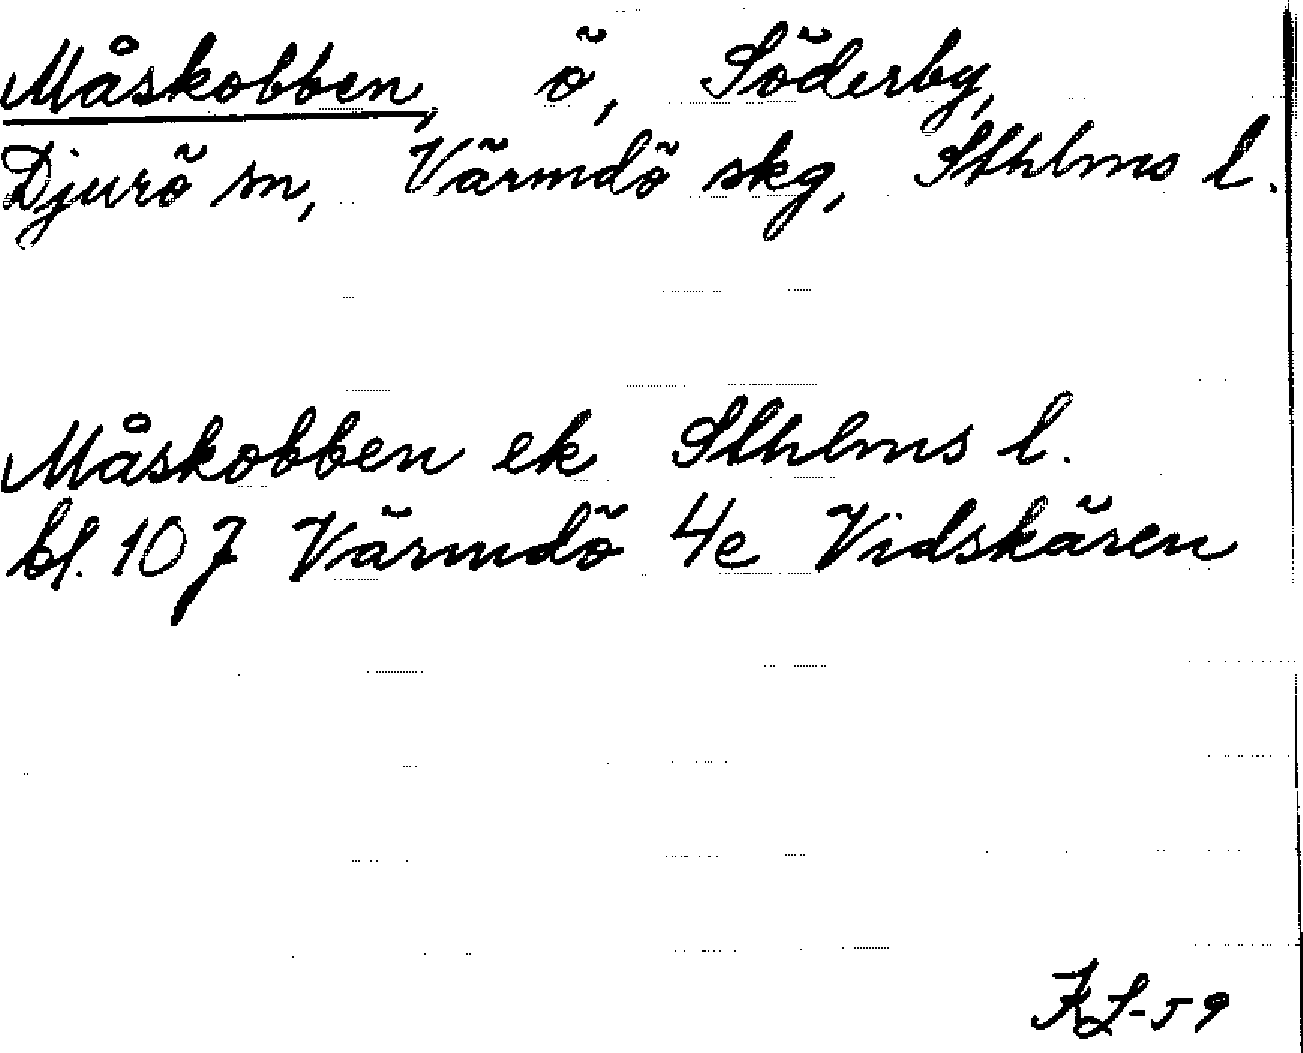 Måskobben, ö, Söderby,
Djurö sn, Värmdö skg, Sthlms l.
Måskobben ek Sthlms l.
bl. 107 Värmdö 4e Vidskären
KL-59